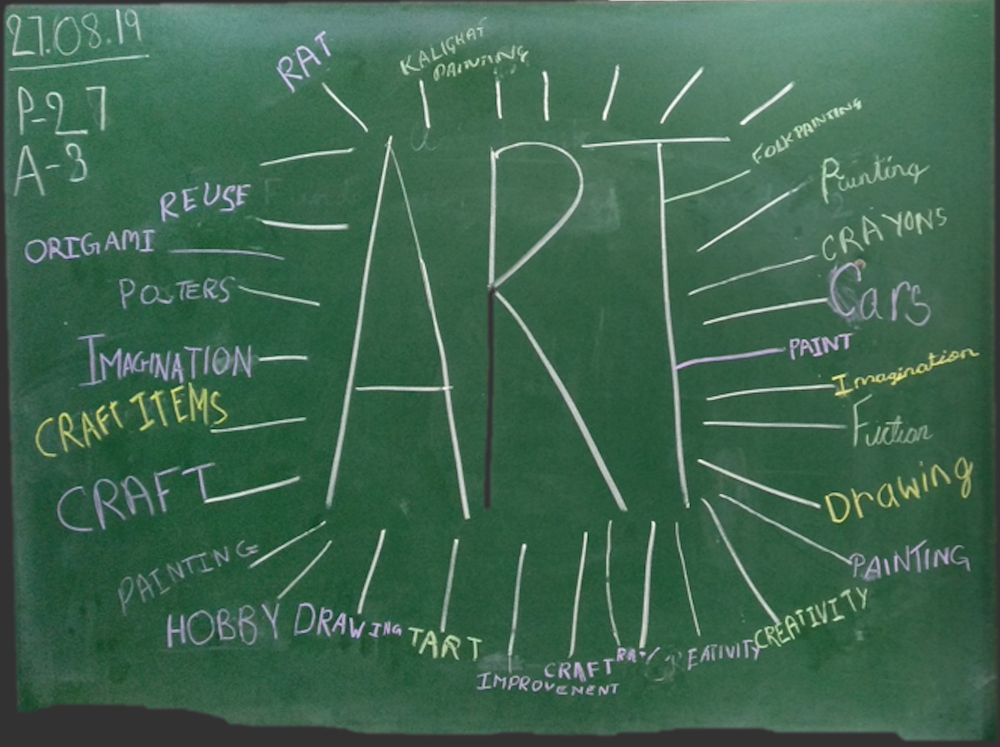 27.08.19
P-27
A-3
RAT
KALIGHAT
PAINTING
FOLKPAINTING
Painting
CRAYONS
Cars
PAINT
Imagination
Fiction
Drawing
PAINTING
CREATIVITY
CREATIVITY
CRAFT
IMPROVEMENT
TART
DRAWING
HOBBY
PAINTING
CRAFT
CRAFT ITEMS
IMAGINATION
POSTERS
ORIGAMI
REUSE
ART